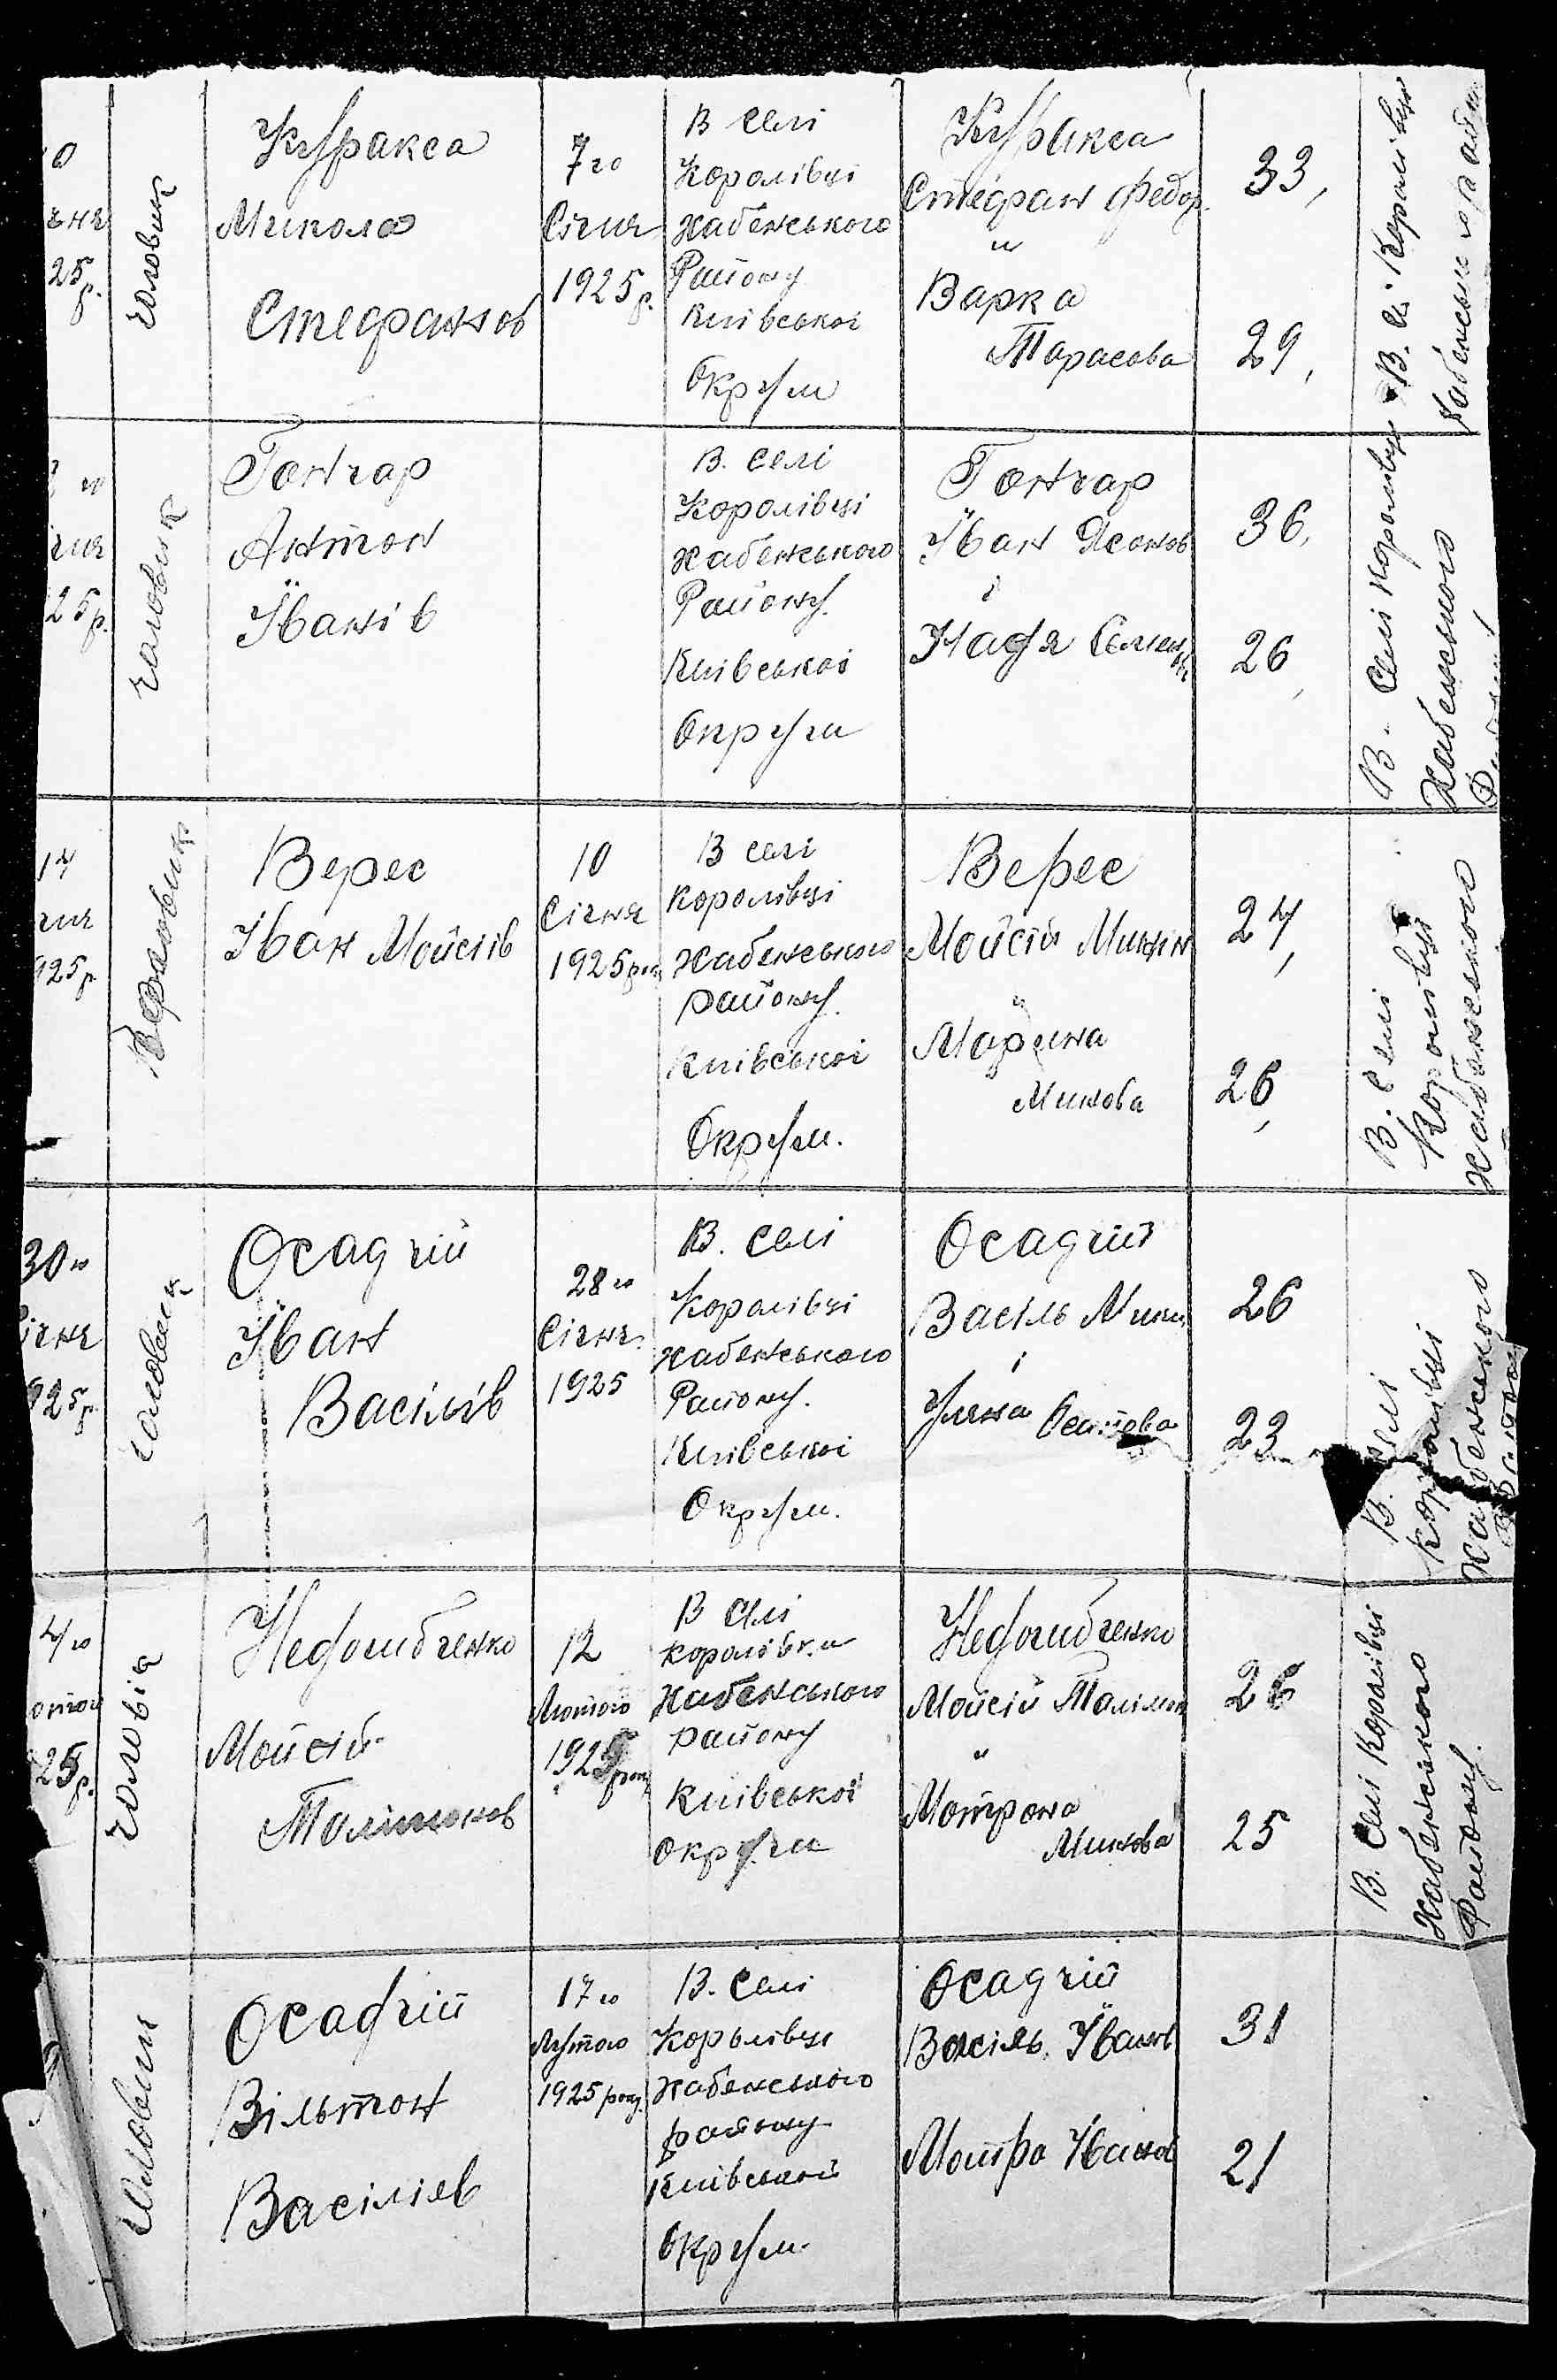 0
ьня
25 р.
чоловик
Куракса
Микола
Стефанов
7го
Січня
1925 р.
В селі
Королівці
Хабенського
Району
Київської
Округи
Куракса
Стефан Федор.
и
Варка
Тарасова
33,
29,
В. с. Королівці
Хабенського району
го
чня
25 р.
чаловик
Гончар
Антон
Іванів
В. селі
Королівці
Хабенського
Району.
Київської
Округи
Гончар
Іван Яконов
і
Надя
36,
26,
В. Селі Королівці
Хабенського
14
чня
925 р
Верес
Іван Мойсеів
10
Січня
1925 року
В селі
Королівці
Хабенського
району.
Київської
Округи.
Верес
Мойсій Минин
и
Марина
Минова
24,
26,
В. Селі
Королівці
Хабенського
30го
Січня
925 р.
чоловик
Осадчій
Іван
Василів
28го
Січня.
1925
В. Селі
Королівці
Хабенського
Району.
Київської
Округи.
Осадчий
Васіль
і
Уляна
26
23
В. Селі
Королівці
Хабенського
Району
4го
ютого
25 р.
чоловік
Недошибченко
Мойсій
Талимонов
12
Лютого
1925 року
В селі
Королівки
Хабенського
району
Київської
Округи
Недошибченко
Мойсій Талімон
и
Мотрона
Минова
26
25
В. Селі Королівці
Хабенського
Району.
чоловик
Осадчій
Вільтон
Василіев
17го
Лутого
1925 року.
В. Селі
Королівци
Хабенського
району
Київської
Округи.
Осадчій
Василь. Іванов
Мотра Іванов
31
21